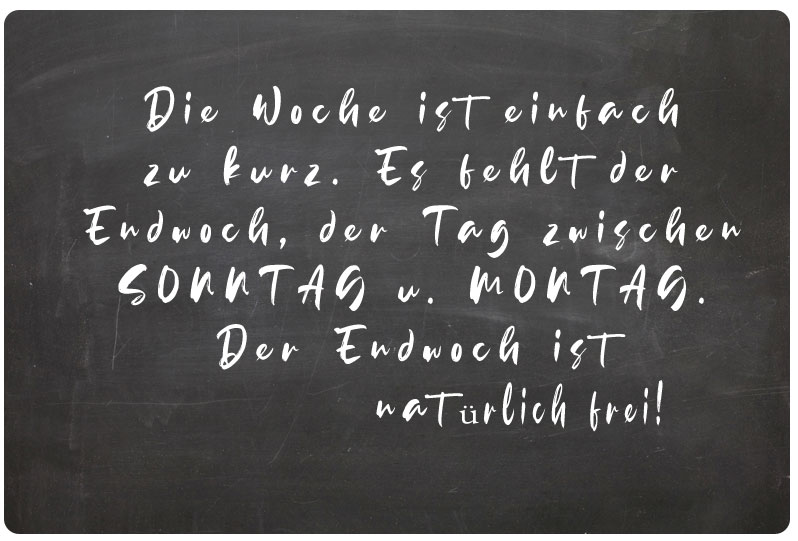 Die Woche ist einfach
zu kurz. Es fehlt der
Endwoch, der Tag zwischen
SONNTAG u. MONTAG.
Der Endwoch ist
natürlich frei!